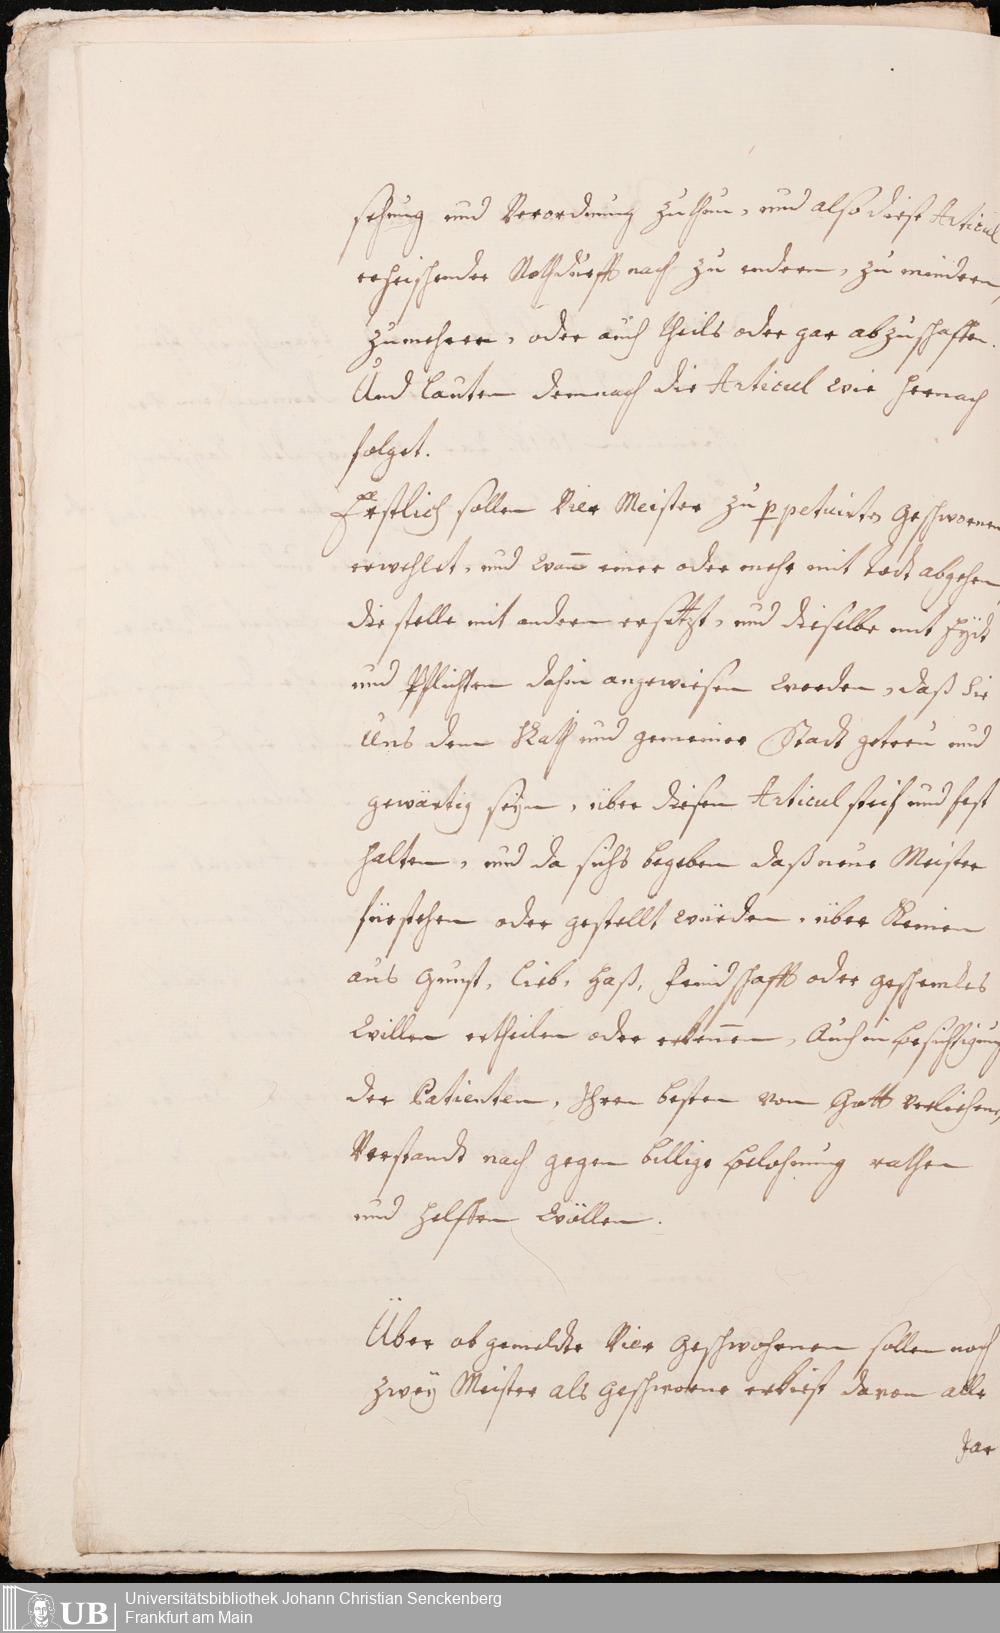 sehung und Verordnung zuthun, und also diese Articul
erheischender Nothdurfft nach zu endern, zu mindern,
zumehren, oder auch theils oder gar abzuschaffen.
Und lauten demnach die Articul wie hernach
folget.
Erstlich sollen Vier Meister zu ppetuirten Geschwornen
erwehlet, und wann einer oder mehr mit todt abgehen,
die stelle mit andern ersetzt, und dieselbe mit Eydt
und Pflichten dahin angewiesen werden, daß Sie
Uns dem Rath und gemeiner Stadt getreu und
gewärtig seÿn, über diesen Articul steif und fest
halten, und da sichs begeben daß neue Meister
fürstehen oder gestellt würden, über Keinen
aus Gunst, lieb, haß, feindschafft oder geschencks
willen ertheilen oder erkennen, Auch in besichtigung
der Patienten, Ihren besten von Gott verliehenen
Verstandt nach gegen billige belohnung rathen
und helffen wöllen.
Über obgemeldte Vier Geschwohrnen sollen noch
zweÿ Meister als Geschworne erkiest davon alle
Jar
Universitätsbibliothek Johann Christian Senckenberg
Frankfurt am Main
UB